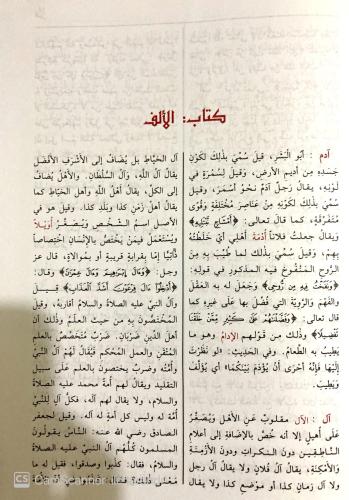 كتاب: الألف
آدم : أبو البَشَرِ، قيلَ سُمِّيَ بذلك لكَوْنِ
جَسَدِهِ مِن أَدِيمِ الأرضِ، وقيلَ لِسُمْرَةٍ في
لَوْنِهِ، يقالُ رَجُلٌ آدَمُ نحوُ أسْمَرَ، وقيلَ
سُمِّيَ بذلك لكَوْنِهِ مِن عناصِرَ مختلِفَةٍ وقُوًى
مُتَفَرِّقَةٍ، كما قال تعالى: ﴿أَمْشَاجٍ نَبْتَلِيهِ﴾
ويقالُ جعلتُ فلاناً أَدَمَةَ أهلي أي خَلَطْتُهُ
بِهِمْ، وقيلَ سُمِّيَ بذلك لما طُيِّبَ به مِن
الرُّوحِ المنفوخِ فيه المذكورِ في قولِه:
﴿وَنَفَخْتُ فِيهِ مِنْ رُوحِي﴾ وجَعَلَ له به العَقْلَ
والفَهْمَ والرَّوِيَّةَ التي فُضِّلَ بها على غيرِه كما
قال تعالى: ﴿وَفَضَّلْنَاهُمْ عَلَى كَثِيرٍ مِمَّنْ خَلَقْنَا
تَفْضِيلًا﴾ وذلك مِن قولهم الإدامُ وهو ما
يطيبُ به الطعامُ، وفي الحديثِ: «لو نَظَرْتَ
إليها فإنه أحْرَى أن يُؤْدَمَ بينكما» أي يُؤَلَّفَ
ويَطِيبَ.
آل : الآل مقلوبٌ عَنِ الأهْلِ ويُصَغَّرُ
على أُهَيْلٍ إلا أنه خُصَّ بالإضافةِ إلى أعلامِ
الناطِقِينَ دونَ النكراتِ ودونَ الأزمِنَةِ
والأمكِنَةِ، يقالُ آلُ فُلانٍ ولا يقالُ آلُ رجلٍ
ولا آلُ زمانِ كذا أو موْضعِ كذا ولا يقالُ
آل الخيَّاطِ بل يُضافُ إلى الأشرفِ الأفضلِ
يقالُ آلُ اللَّهِ، وآلُ السُّلْطانِ. والأهلُ يُضافُ
إلى الكلِّ، يقالُ أهلُ اللَّهِ وأهلُ الخياطِ كما
يقالُ أهلُ زَمَنِ كذا وبَلَدِ كذا. وقيلَ هو في
الأصلِ اسمُ الشخصِ ويُصَغَّرُ أُوَيْلاً
ويُستعمَلُ فيمن يَختَصُّ بالإنسانِ اختِصاصاً
ذاتِيّاً إمّا بقرابةٍ قريبةٍ أو بموالاةٍ، قال عز
وجل: ﴿وَآلَ إِبْرَاهِيمَ وَآلَ عِمْرَانَ﴾ وقال:
﴿أَدْخِلُوا آلَ فِرْعَوْنَ أَشَدَّ الْعَذَابِ﴾ قيلَ
وآلُ النبيِّ عليه الصلاة والسلام أقاربُهُ، وقيلَ
المُخْتَصُّونَ به مِن حيثُ العِلْمُ وذلك أن
أهلَ الدينِ ضَرْبَانِ، ضَرْبٌ مُتَخَصِّصٌ بالعلم
المُتْقَنِ والعَمَلِ المُحْكَمِ فَيُقالُ لَهُم آلُ النَّبِيِّ
وأُمَّتُهُ وضَربٌ يختصونَ بالعلمِ على سبيلِ
التقليدِ ويقالُ لهم أُمةُ محمد عليه الصلاةُ
والسلامُ، ولا يقالُ لهم آله، فكلُّ آلٍ للنبيِّ
أُمةٌ له وليس كلُّ أُمةٍ له آله، وقيلَ لجعفرٍ
الصادقِ رضي الله عنه: الناسُ يقولونَ
المسلمونَ كُلُّهُم آلُ النبيِّ عليه الصلاة
والسلام، فقال: كذبوا وصدقوا، فقيلَ له ما
معنى ذلك؟
CS CamScanner